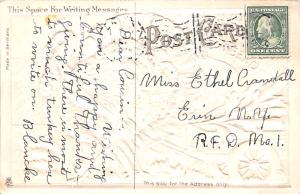 This Space For Writing Messages
Dear Cousin:
Wishing
you a happy and
bountiful Thanks-
giving. There is most
to much turkey here
to write on
Blanche
Made in Germany
POST CARD
U.S. POSTAGE
ONE CENT
Miss Ethel Crandall
Erin N.Y.
R.F.D. No. 1.
This side for the Address only.